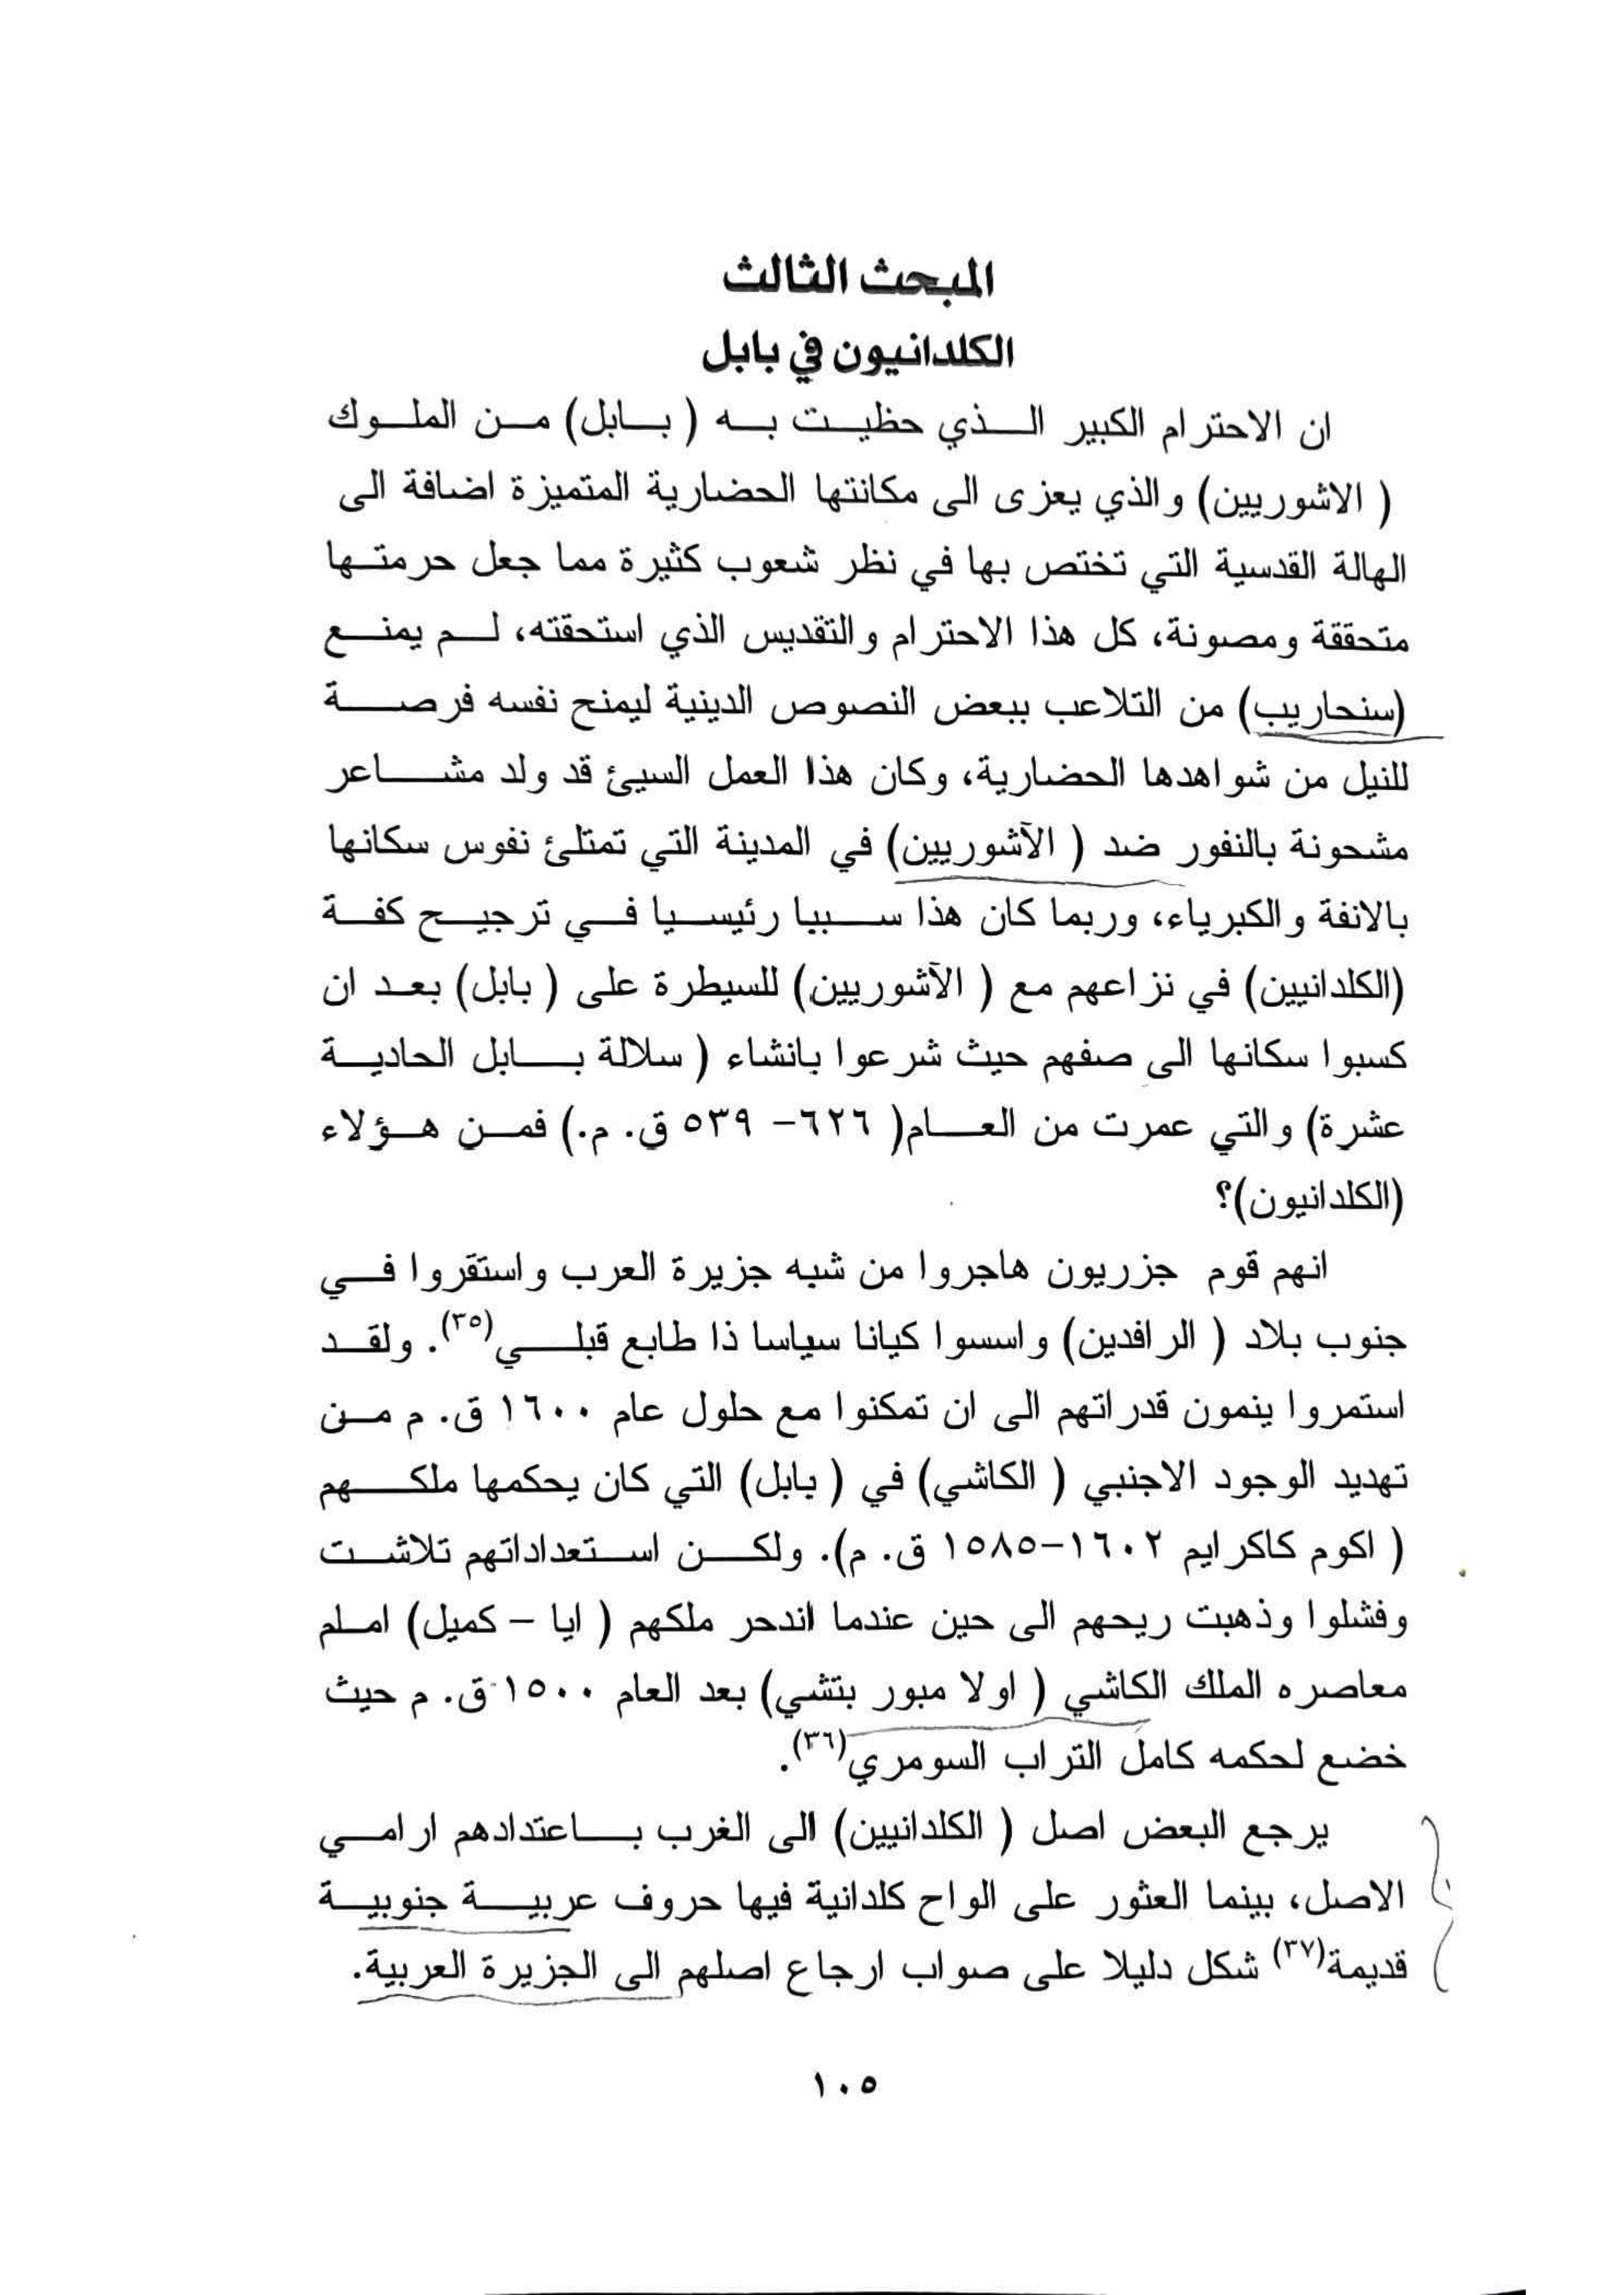 المبحث الثالث
الكلدانيون في بابل
ان الاحترام الكبير الذي حظيت به ( بابل) من الملوك
( الاشوريين) والذي يعزى الى مكانتها الحضارية المتميزة اضافة الى
الهالة القدسية التي تختص بها في نظر شعوب كثيرة مما جعل حرمتها
متحققة ومصونة، كل هذا الاحترام والتقديس الذي استحقته، لم يمنع
(سنحاريب) من التلاعب ببعض النصوص الدينية ليمنح نفسه فرصة
للنيل من شواهدها الحضارية، وكان هذا العمل السيئ قد ولد مشاعر
مشحونة بالنفور ضد ( الآشوريين) في المدينة التي تمتلئ نفوس سكانها
بالانفة والكبرياء، وربما كان هذا سببا رئيسيا في ترجيح كفة
(الكلدانيين) في نزاعهم مع ( الآشوريين) للسيطرة على ( بابل) بعد ان
كسبوا سكانها الى صفهم حيث شرعوا بانشاء ( سلالة بابل الحادية
عشرة) والتي عمرت من العام( ٦٢٦- ٥٣٩ ق. م.) فمن هؤلاء
(الكلدانيون)؟
انهم قوم جزريون هاجروا من شبه جزيرة العرب واستقروا في
جنوب بلاد ( الرافدين) واسسوا كيانا سياسا ذا طابع قبلي(٣٥). ولقد
استمروا ينمون قدراتهم الى ان تمكنوا مع حلول عام ١٦٠٠ ق. م من
تهديد الوجود الاجنبي ( الكاشي) في ( بابل) التي كان يحكمها ملكهم
( اكوم كاكرايم ١٦٠٢-١٥٨٥ ق. م). ولكن استعداداتهم تلاشت
وفشلوا وذهبت ريحهم الى حين عندما اندحر ملكهم ( ايا - كميل) املم
معاصره الملك الكاشي ( اولا مبور بتشي) بعد العام ١٥٠٠ ق. م حيث
خضع لحكمه كامل التراب السومري(٣٦).
يرجع البعض اصل ( الكلدانيين) الى الغرب باعتدادهم ارامي
الاصل، بينما العثور على الواح كلدانية فيها حروف عربية جنوبية
قديمة(٣٧) شكل دليلا على صواب ارجاع اصلهم الى الجزيرة العربية.
١٠٥